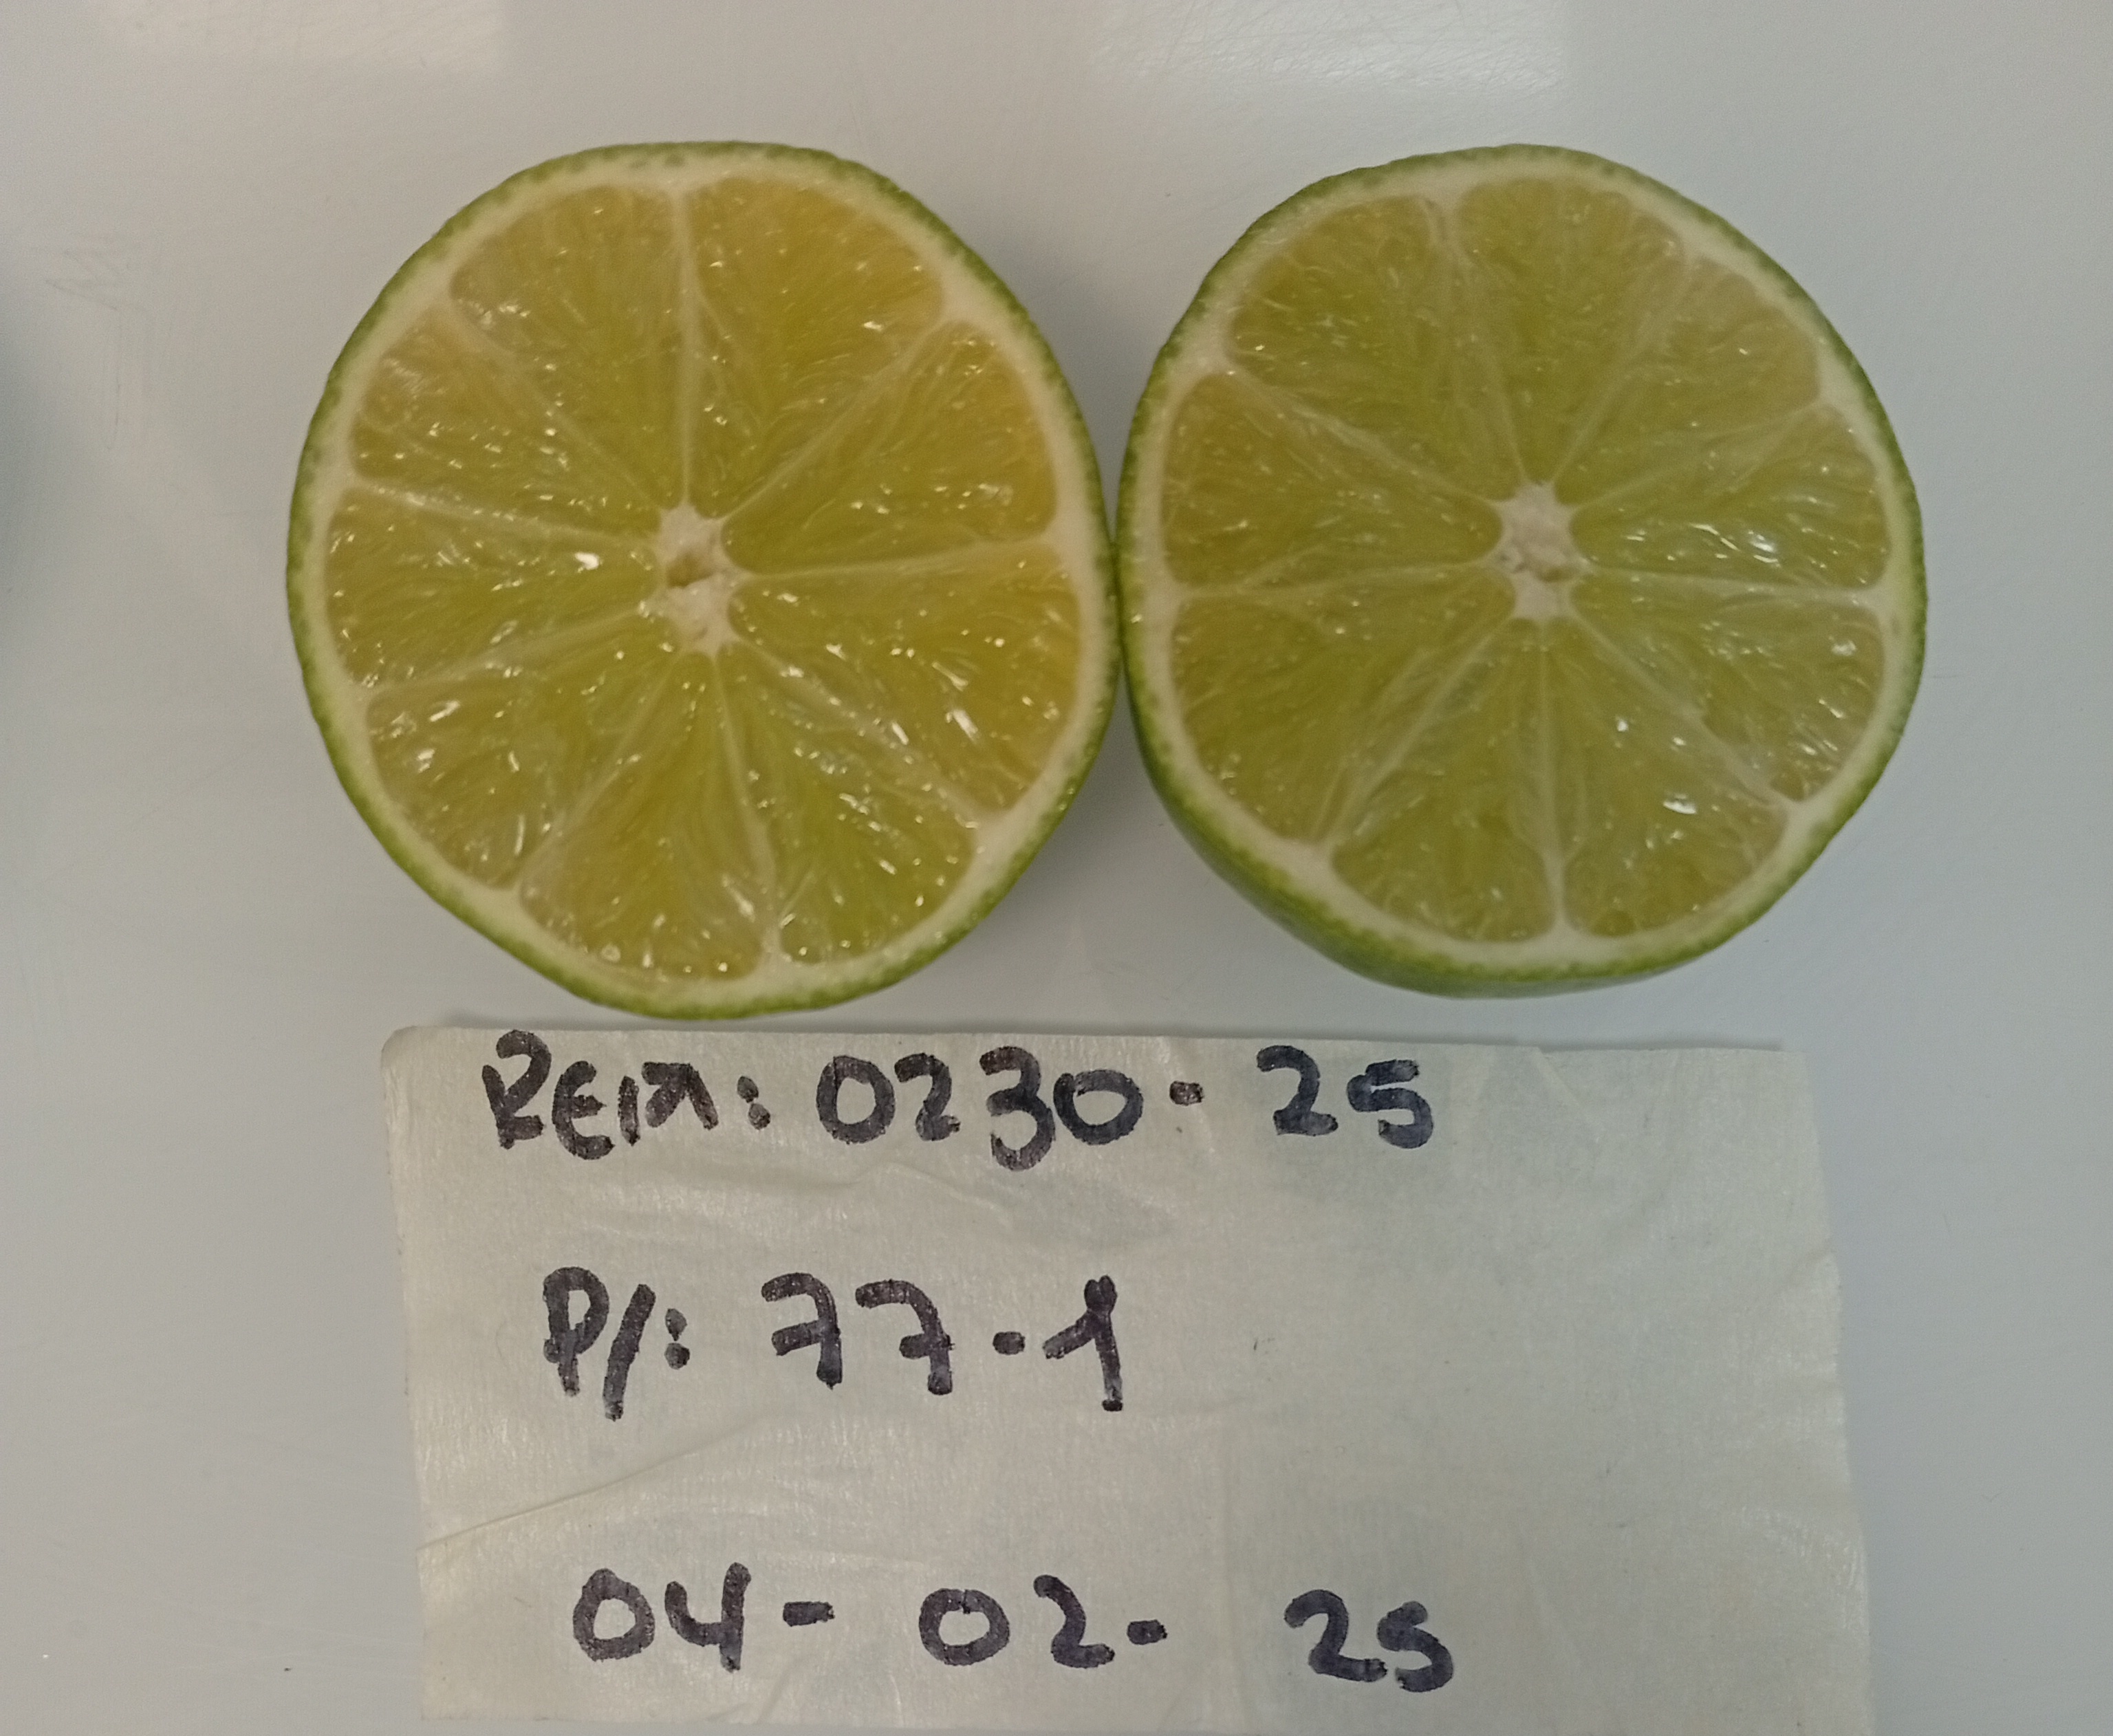 REM: 0230-25
P/: 77-1
04-02-25